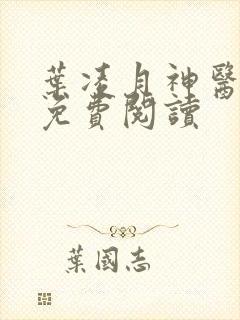 葉凌月神醫
免費閱讀
葉國志